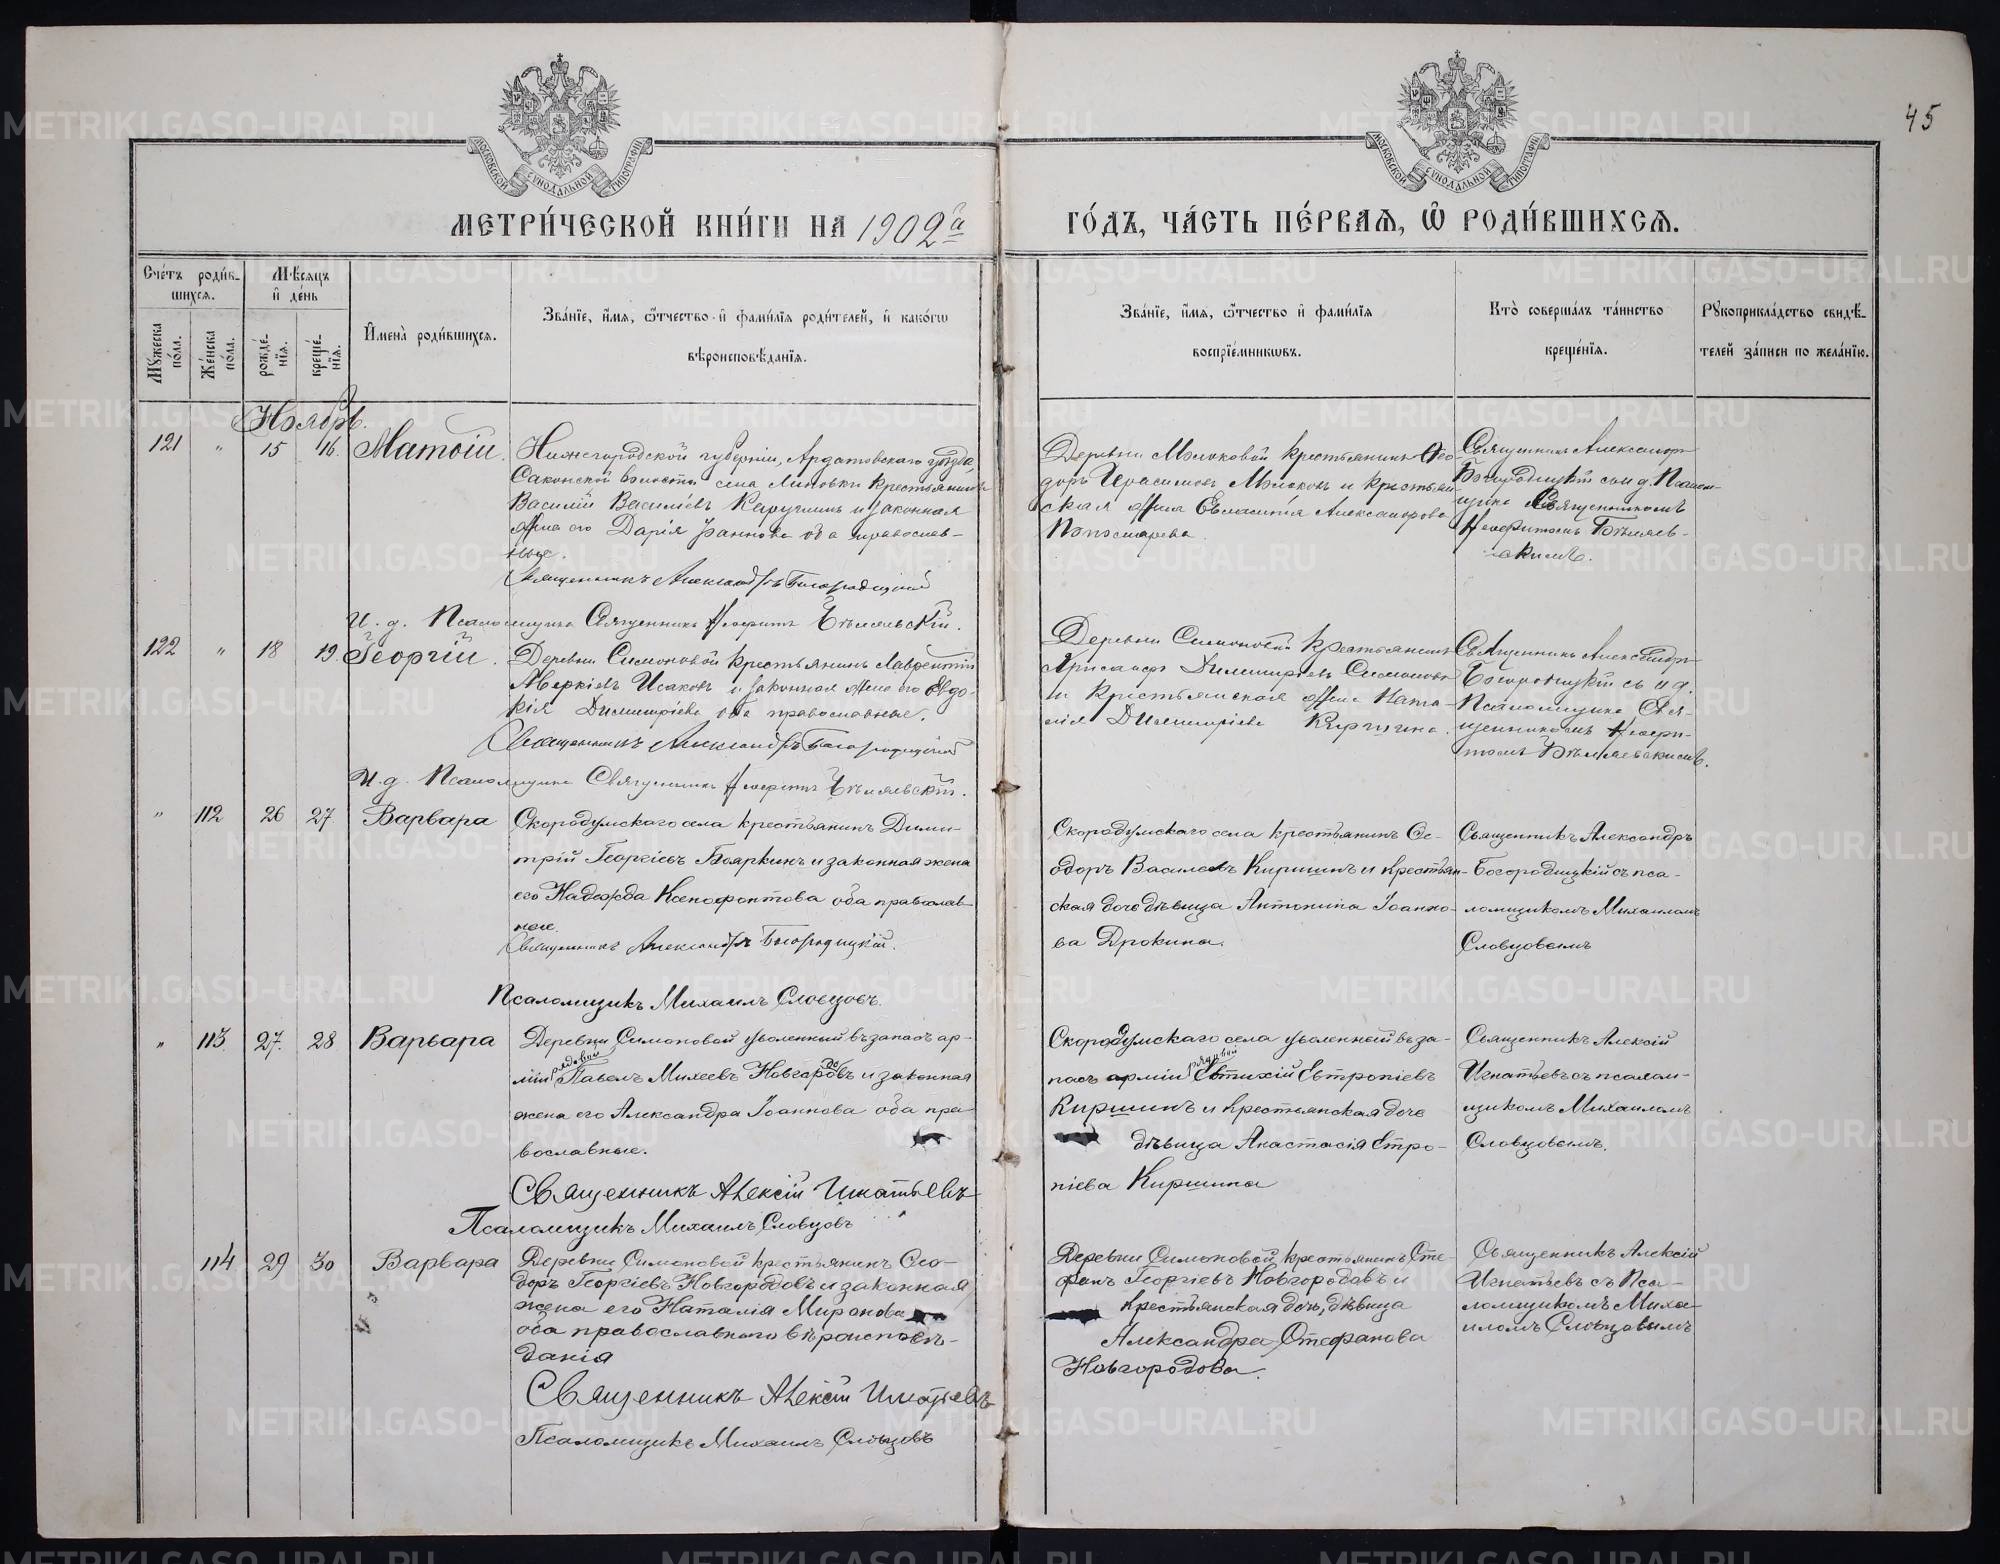 45
МОСКОВСКОЙ СѴНОДАЛЬНОЙ ТИПОГРАФІИ
МОСКОВСКОЙ СѴНОДАЛЬНОЙ ТИПОГРАФІИ
МЕТРИ́ЧЕСКОЙ КНИ́ГИ НА 1902 й
ГО́ДЪ, ЧА́СТЬ ПЕ́РВАѦ, Ѿ РОДИ́ВШИХСѦ.
Сче́тъ роди́в-
шихсѧ.
Мꙋжеска по́ла.
Же́нска по́ла.
Мѣ́сѧцъ
и҆ де́нь
рожде́-
нїѧ.
креще́-
нїѧ.
И҆мена̀ роди́вшихсѧ.
Зва́нїе, и҆́мѧ, ѻ҆́тчество и҆ фами́лїѧ роди́телей, и҆ како́гѡ
вѣроисповѣ́данїѧ.
Зва́нїе, и҆́мѧ, ѻ҆́тчество и҆ фами́лїѧ
воспрїе́мникѡвъ.
Кто̀ соверша́лъ та́инство
креще́нїѧ.
Рꙋкоприкла́дство свидѣ́-
телей за́писи по жела́нїю.
Ноябрь.
121 " 15 16. Матѳій.
Нижегородской губерніи, Ардатовскаго уѣзда,
Саконской волости села Липовки крестьянинъ
Василій Василіевъ Каручинъ и законная
жена его Дарія Іоаннова оба православ-
ные.
Священникъ Александръ Богородицкій
И. д. Псаломщика Священникъ Неофитъ Бѣляевскій.
Деревни Молоковой крестьянинъ Ѳео-
доръ Герасимовъ Молоковъ и крестьян-
ская жена Евласпія Александрова
Священникъ Александръ
Богородицкій съ и д. Псалом-
щика Священникомъ
Неофитомъ Бѣляев-
скимъ.
122 " 18 19. Георгій.
Деревни Симоновой крестьянинъ Лаврентій
Аверкіевъ Исаковъ и законная жена его Евдо-
кія Димитріева оба православные.
Священникъ Александръ Богородицкій
И. д. Псаломщика Священникъ Неофитъ Бѣляевскій.
Деревни Симоновой крестьянинъ
Хрисанфъ Димитріевъ Симоновъ
и крестьянская жена Ната-
лія Димитріева
Священникъ Александръ
Богородицкій съ и д.
Псаломщика Свя-
щенникомъ Неофи-
томъ Бѣляевскимъ.
" 112 26 27. Варвара
Скородумскаго села крестьянинъ Дими-
трій Георгіевъ Бояркинъ и законная жена
его Надежда Ксенофонтова оба православ-
ные.
Священникъ Александръ Богородицкій.
Псаломщикъ Михаилъ Словцовъ.
Скородумскаго села крестьянинъ Ѳе-
одоръ Василевъ Киршинъ и крестьян-
ская дочь дѣвица Антонина Іоанно-
ва Дрокина.
Священникъ Александръ
Богородицкій съ пса-
ломщикомъ Михаиломъ
Словцовымъ
" 113. 27. 28 Варвара
Деревни Симоновой уволенный въ запасъ ар-
міи рядовой Павелъ Михеевъ Новгородовъ и законная
жена его Александра Іоаннова оба пра-
вославные.
Священникъ Алексій Игнатьевъ
Псаломщикъ Михаилъ Словцовъ
Скородумскаго села уволенный въ за-
пасъ арміи рядовой Евтихій Евтропіевъ
Киршинъ и крестьянская дочь
дѣвица Анастасія Етро-
піева Киршина
Священникъ Алексій
Игнатьевъ съ псалом-
щикомъ Михаиломъ
Словцовымъ.
114 29 30 Варвара
Деревни Симоновой крестьянинъ Ѳео-
доръ Георгіевъ Новгородовъ и законная
жена его Наталія Миронова
оба православнаго вѣроисповѣ-
данія
Священникъ Алексій Игнатьевъ
Псаломщикъ Михаилъ Словцовъ
Деревни Симоновой крестьянинъ Сте-
фанъ Георгіевъ Новгородовъ и
крестьянская дочь, дѣвица
Александра Стефанова
Новгородова.
Священникъ Алексій
Игнатьевъ съ Пса-
ломщикомъ Миха-
иломъ Словцовымъ